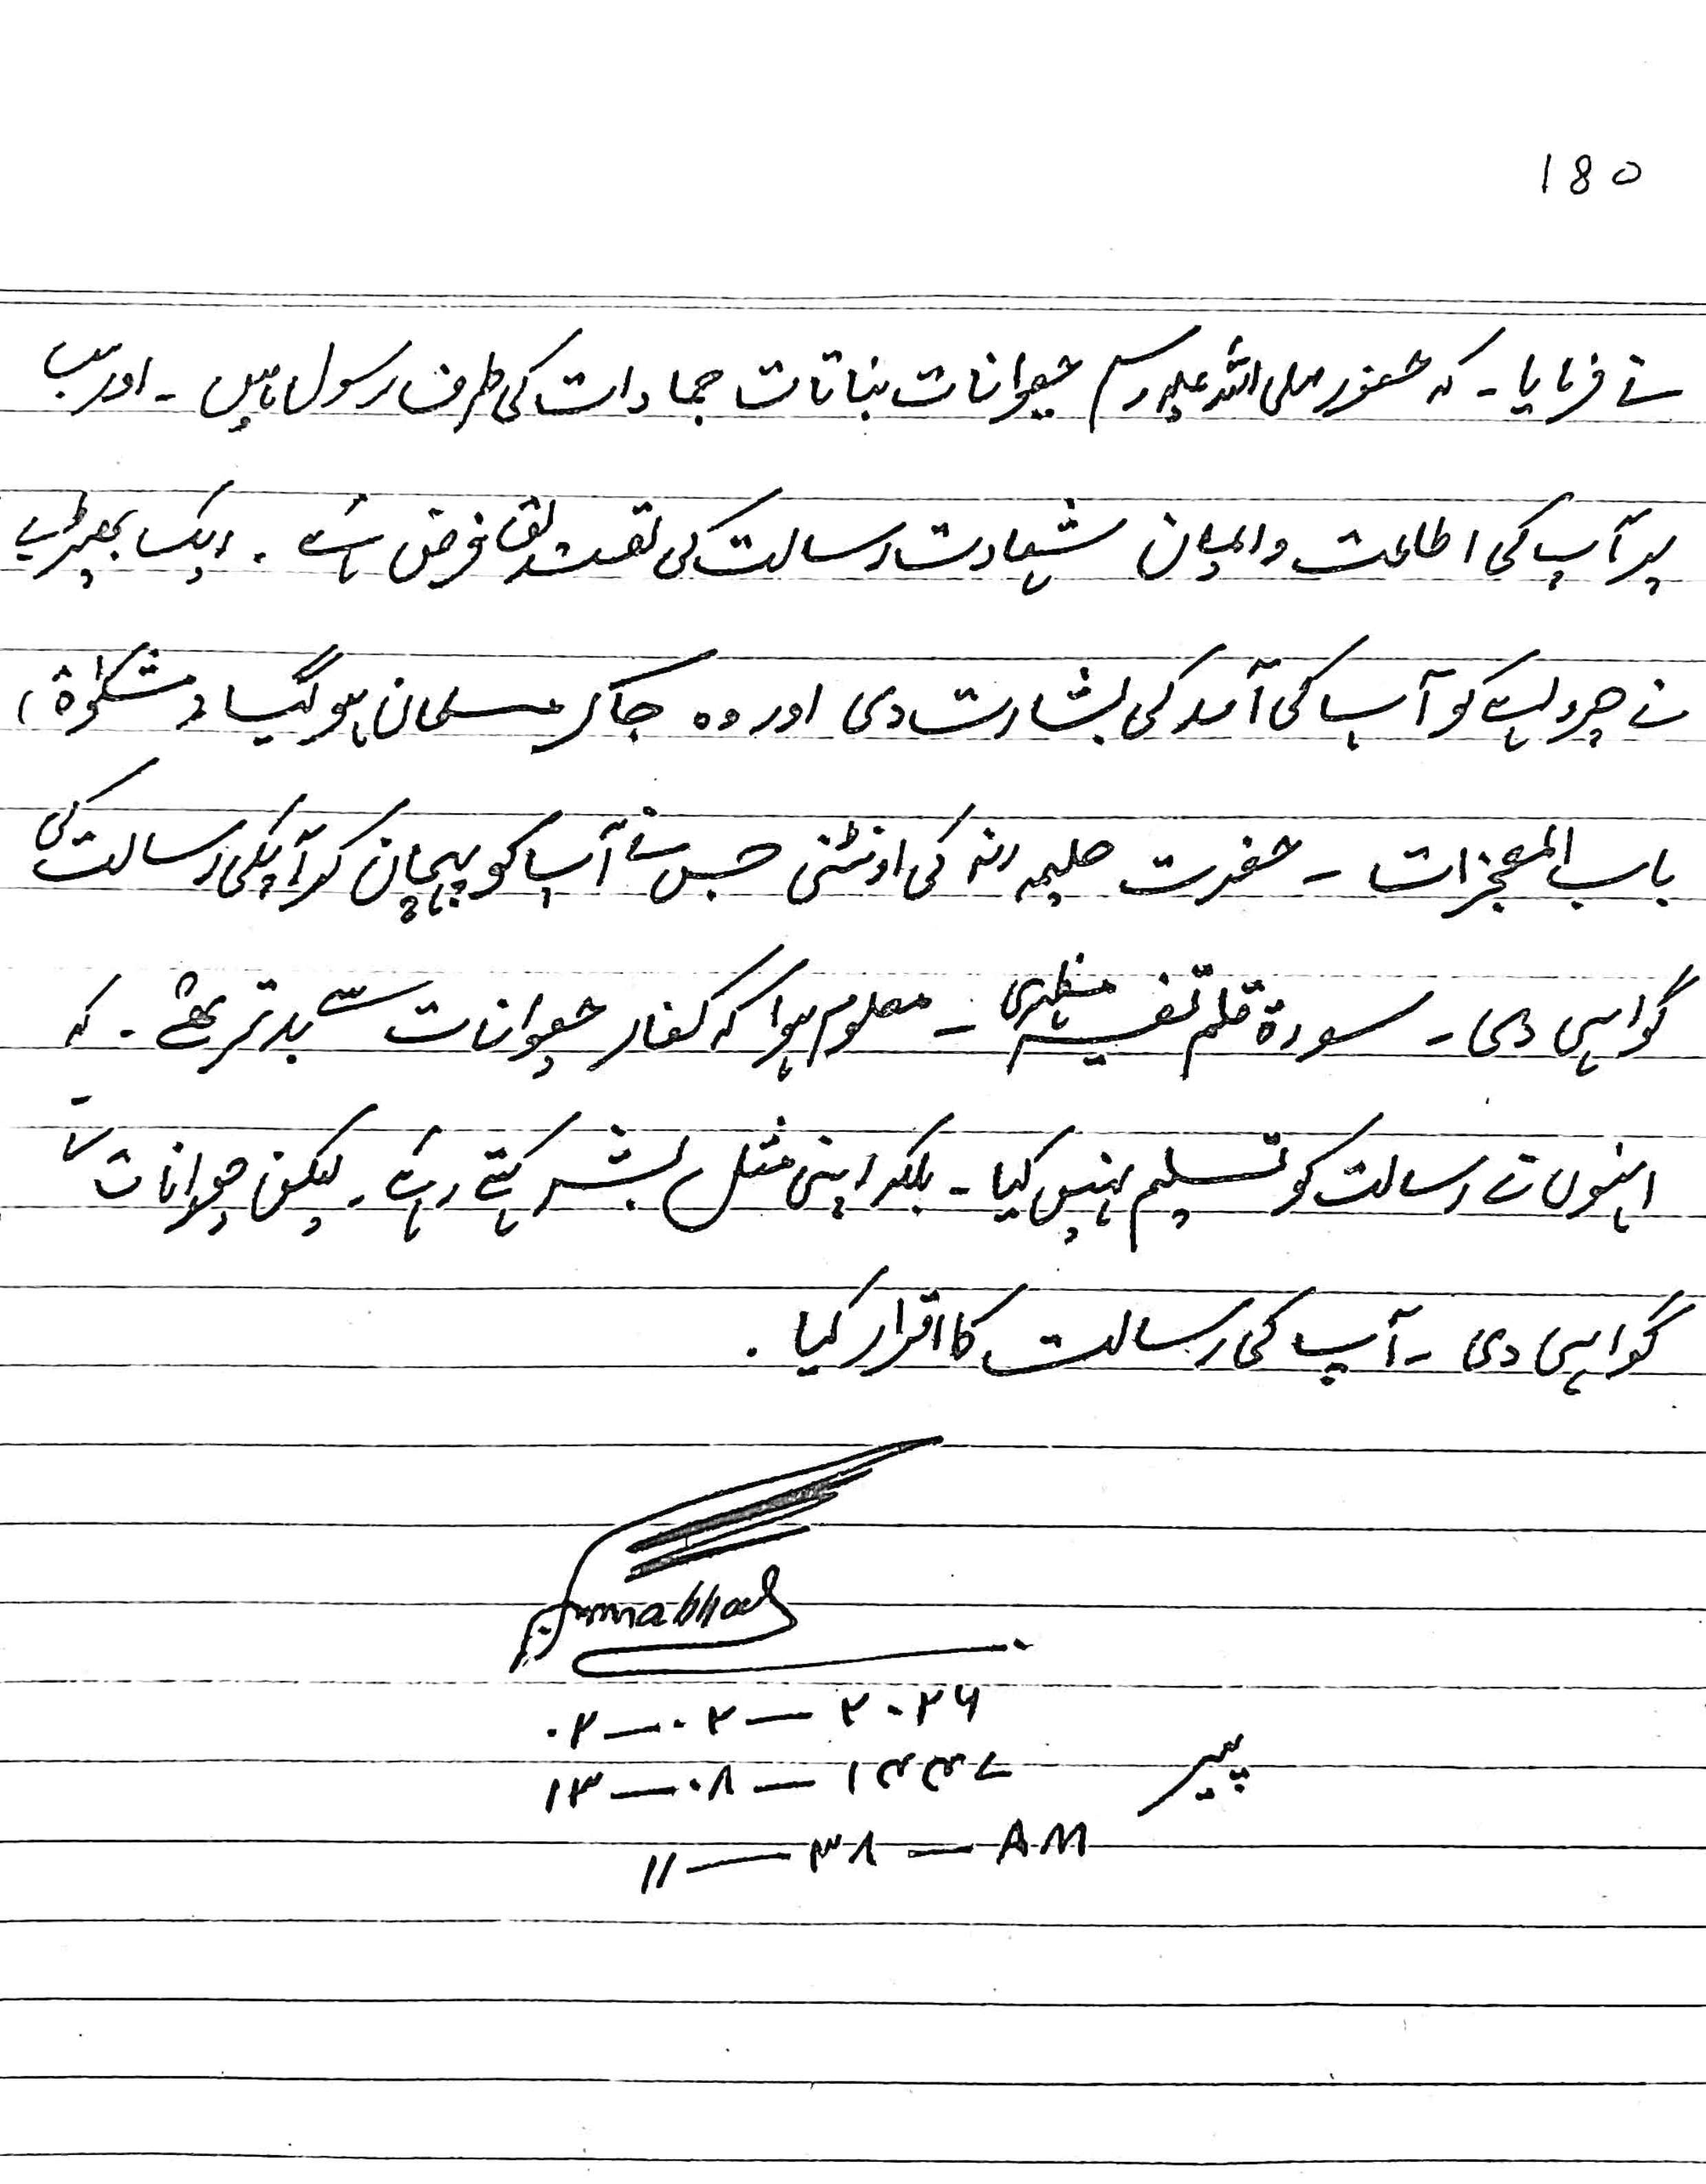 180
نے فرمایا۔ کہ حضور صلی اللہ علیہ وسلم حیوانات نباتات جمادات کی طرف رسول ہیں۔ اور سب
پر آپ کی اطاعت و ایمان شہادت رسالت کی تصدیق فرض ہے۔ ایک بھیڑیے
نے چرواہے کو آپ کی آمد کی بشارت دی اور وہ جا کر مسلمان ہو گیا (مشکوٰة)
باب المعجزات۔ حضرت حلیمہ رضہ کی اونٹنی جس نے آپ کو پہچان کر آپکی رسالت کی
گواہی دی۔ سورة قلم تفسیر مظہری۔ معلوم ہوا کہ کفار حیوانات سے بدتر تھے۔ کہ
انہوں نے رسالت کو تسلیم نہیں کیا۔ بلکہ اپنی مثل بشر کہتے رہے۔ لیکن حیوانات نے
گواہی دی۔ آپ کی رسالت کا اقرار کیا۔
۰۲—۰۲—۲۰۲۶
پیر ۱۳—۰۸—۱۴۴۷
۱۱—۳۸—AM